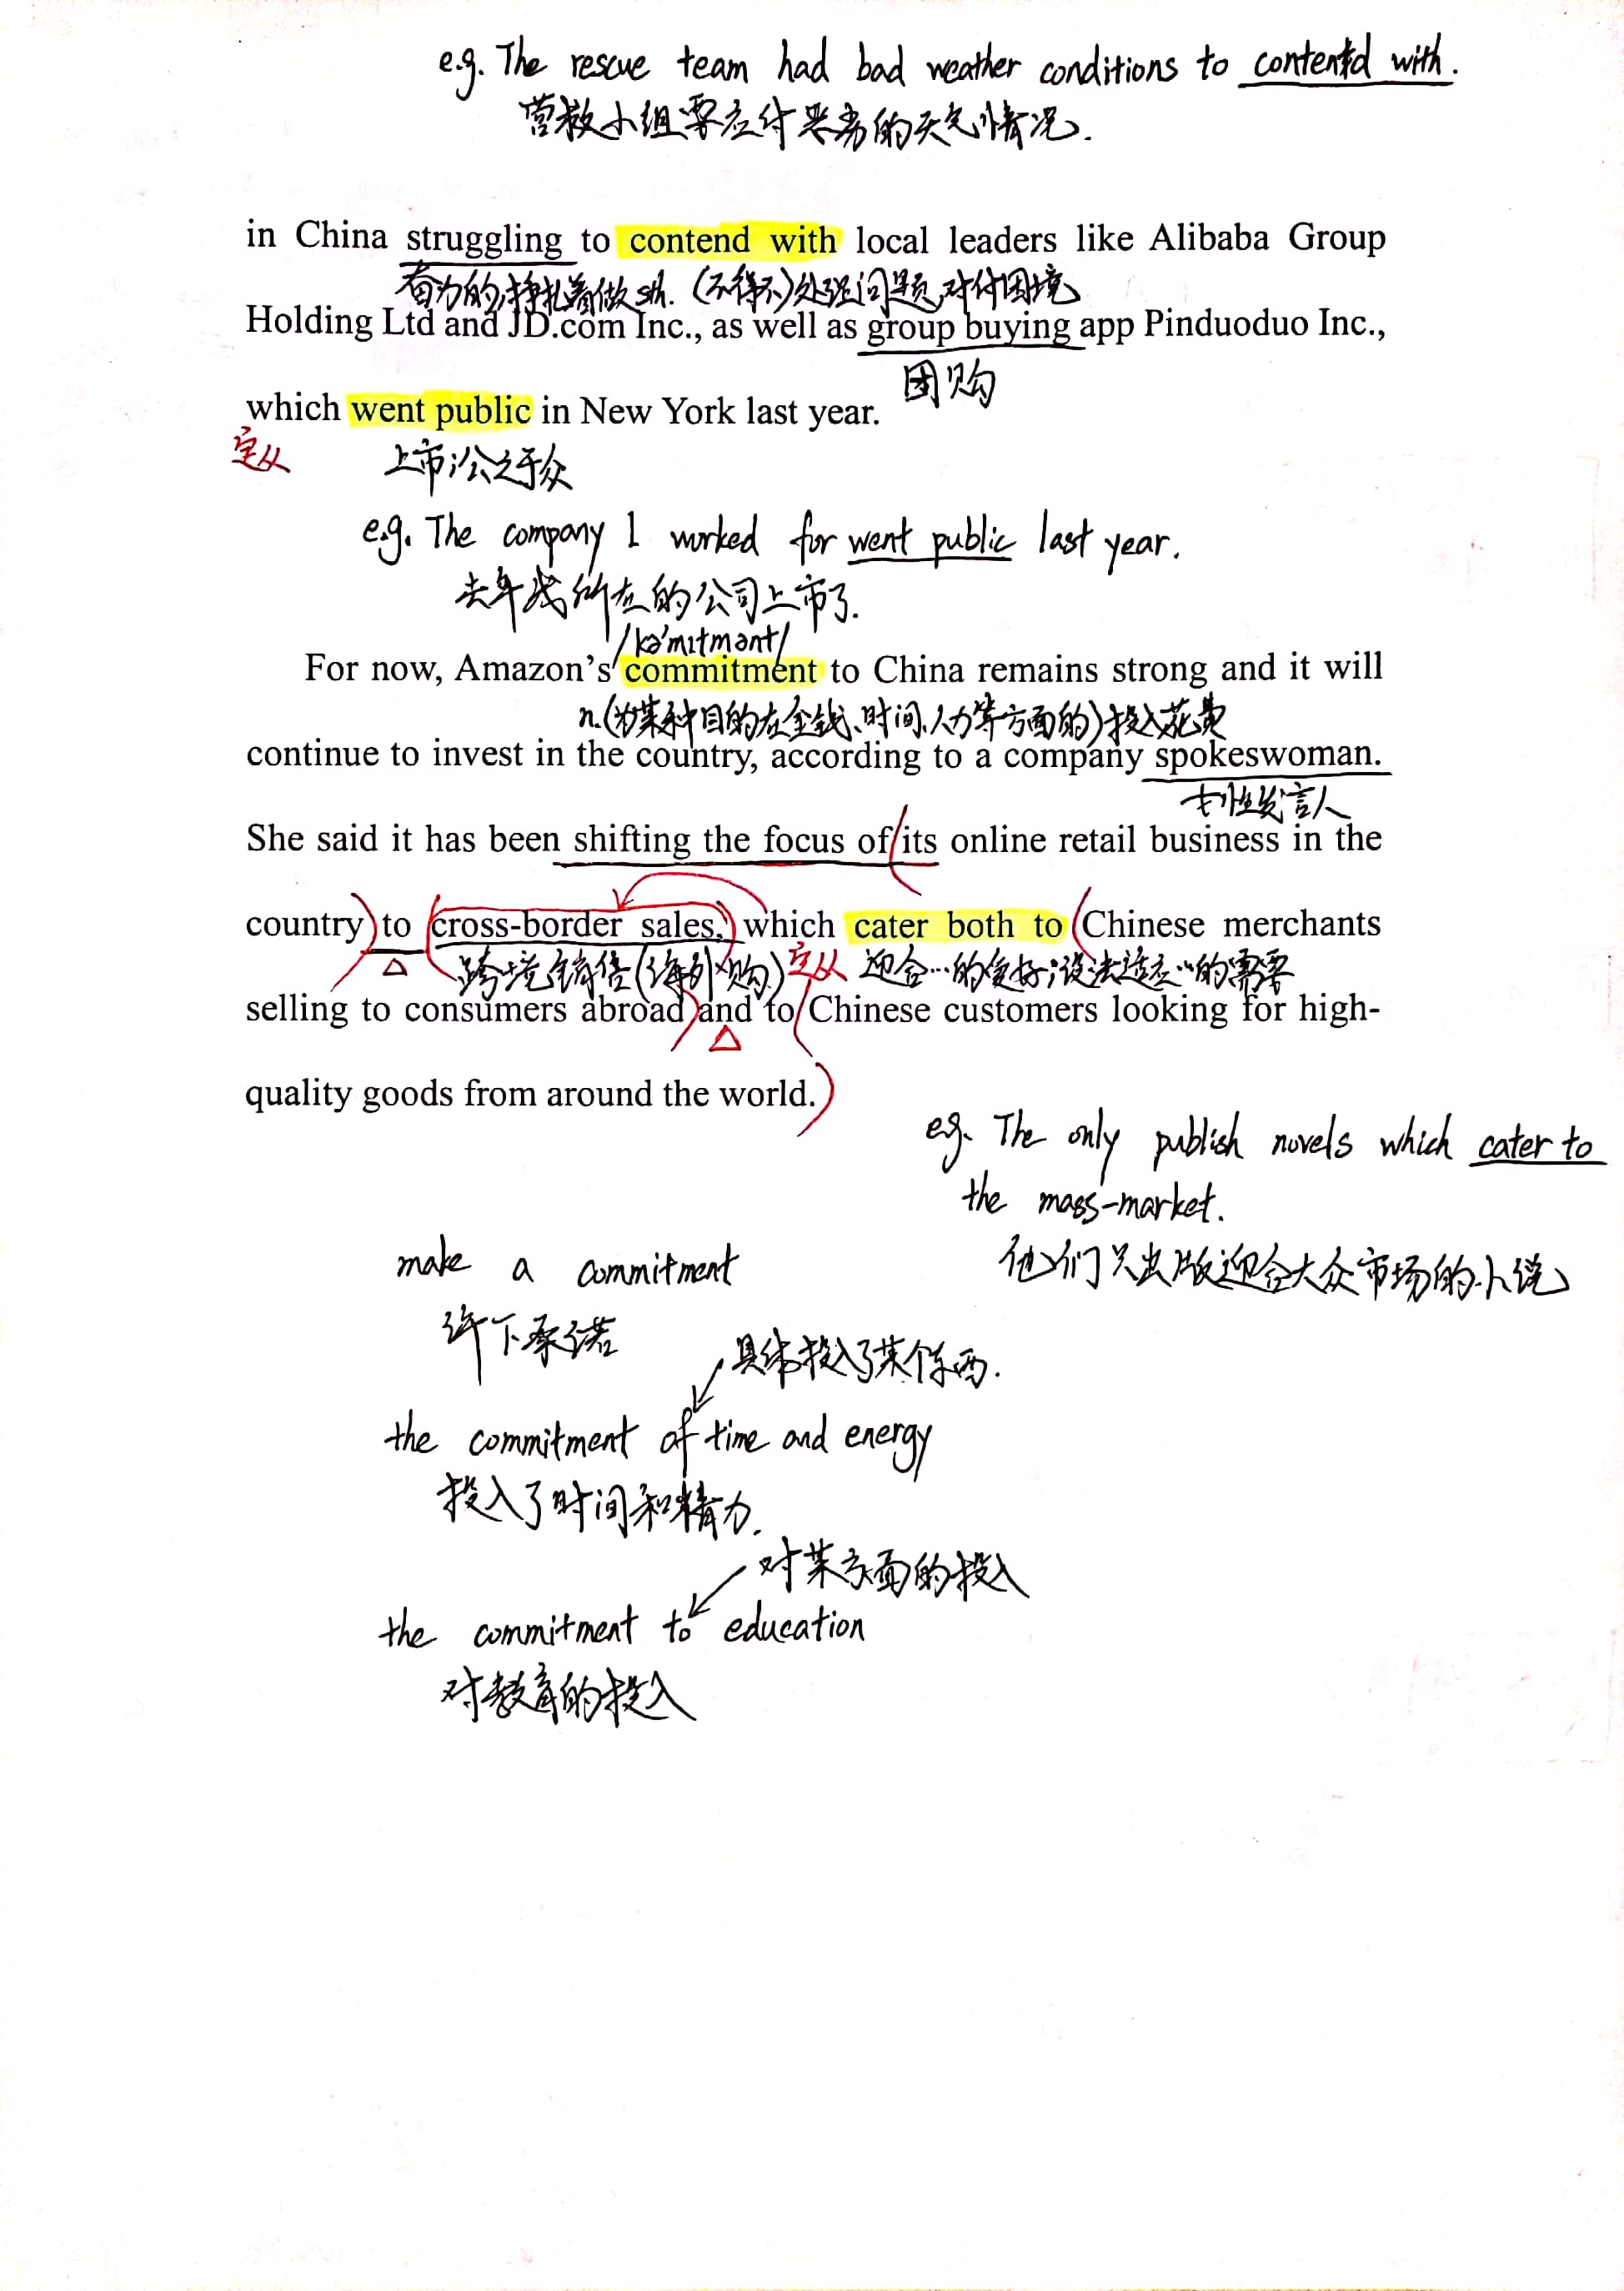 e.g. The rescue team had bad weather conditions to contend with.
营救小组要应付恶劣的天气情况.
in China struggling to contend with local leaders like Alibaba Group
奋力的,挣扎着做sth. (不得不)处理问题,对付困境
Holding Ltd and JD.com Inc., as well as group buying app Pinduoduo Inc.,
团购
which went public in New York last year.
定从 上市;公之于众
e.g. The company I worked for went public last year.
去年我所在的公司上市了.
/kə'mɪtmənt/
For now, Amazon's commitment to China remains strong and it will
n.(为某种目的在金钱、时间、人力等方面的)投入花费
continue to invest in the country, according to a company spokeswoman.
女性发言人
She said it has been shifting the focus of its online retail business in the
country to cross-border sales, which cater both to Chinese merchants
跨境销售(海外购) 定从 迎合…的爱好;设法适应…的需要
selling to consumers abroad and to Chinese customers looking for high-
quality goods from around the world.
e.g. The only publish novels which cater to
the mass-market.
他们只出版迎合大众市场的小说
make a commitment
许下承诺
具体投入了某个东西.
the commitment of time and energy
投入了时间和精力.
对某方面的投入
the commitment to education
对教育的投入